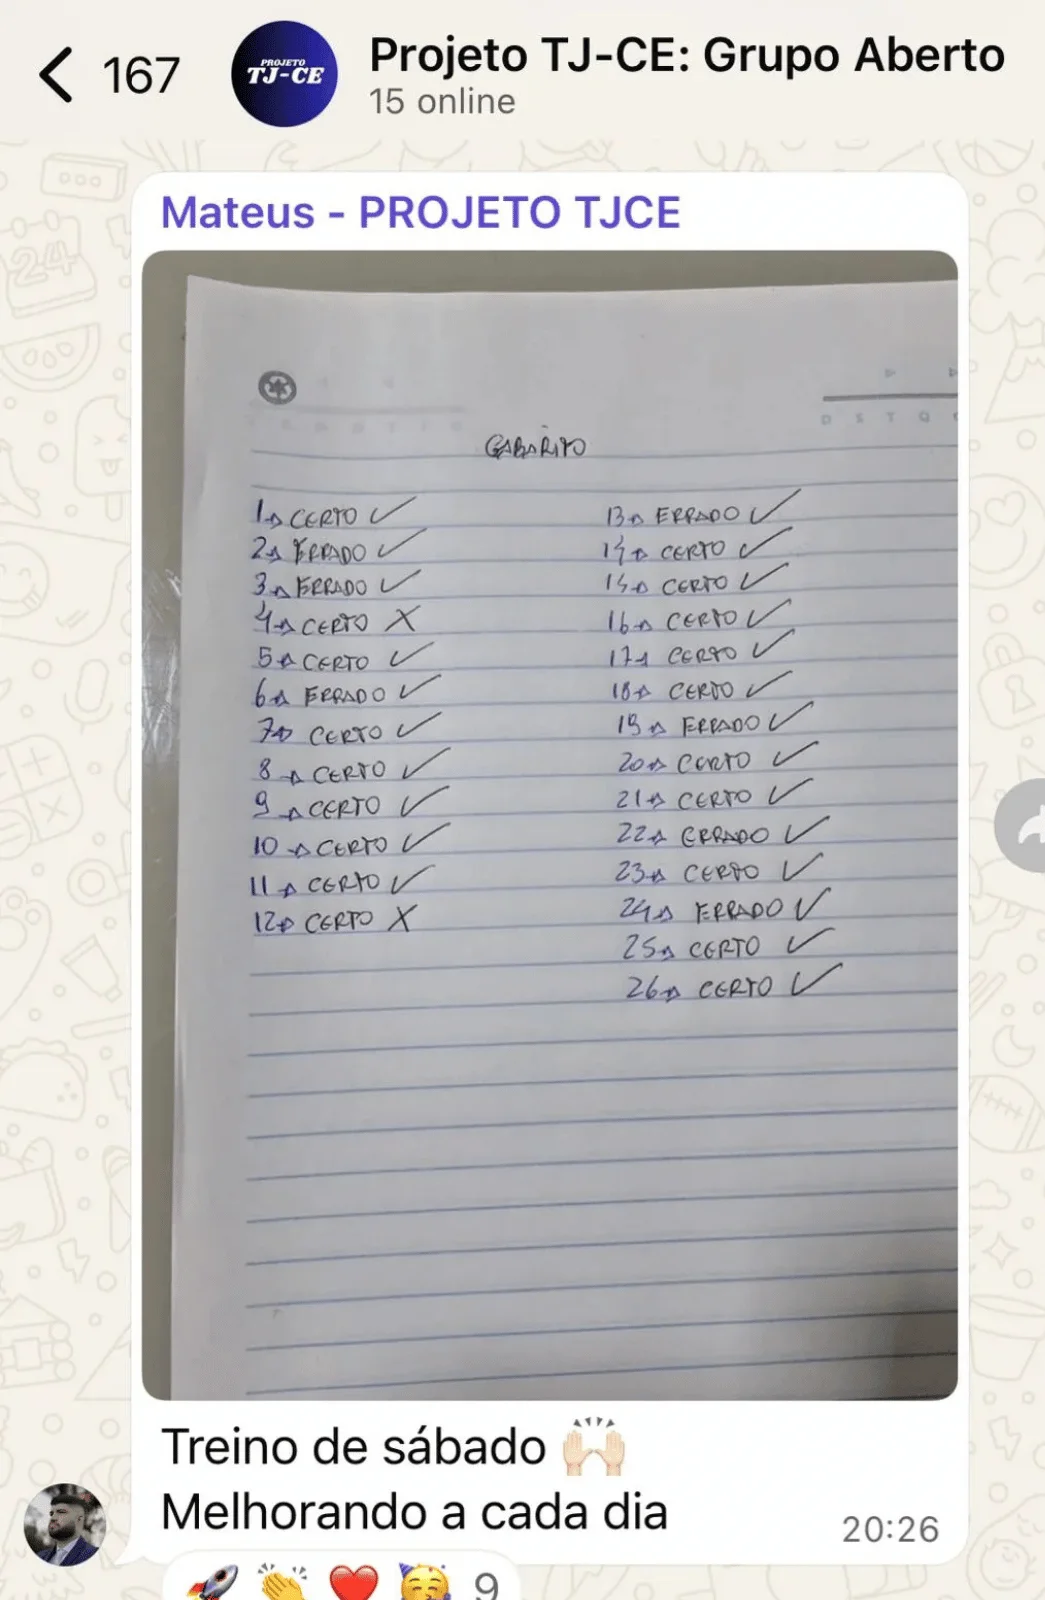 167
PROJETO
TJ-CE
Projeto TJ-CE: Grupo Aberto
15 online
Mateus - PROJETO TJCE
D S T Q
GABARITO
1 CERTO ✓
2 ERRADO ✓
3 ERRADO ✓
4 CERTO X
5 CERTO ✓
6 ERRADO ✓
7 CERTO ✓
8 CERTO ✓
9 CERTO ✓
10 CERTO ✓
11 CERTO ✓
12 CERTO X
13 ERRADO ✓
14 CERTO ✓
15 CERTO ✓
16 CERTO ✓
17 CERTO ✓
18 CERTO ✓
19 ERRADO ✓
20 CERTO ✓
21 CERTO ✓
22 ERRADO ✓
23 CERTO ✓
24 ERRADO ✓
25 CERTO ✓
26 CERTO ✓
Treino de sábado 🙌🏻
Melhorando a cada dia
20:26
🚀 👏 ❤️ 🥳 9